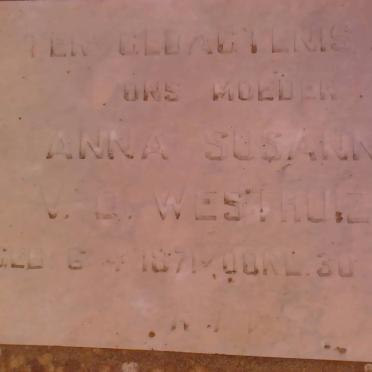 TER GEDAGTENIS
ONS MOEDER
ANNA SUSANN
V. D. WESTHUIZ
GEB 6 - 4 1871 OORL. 30